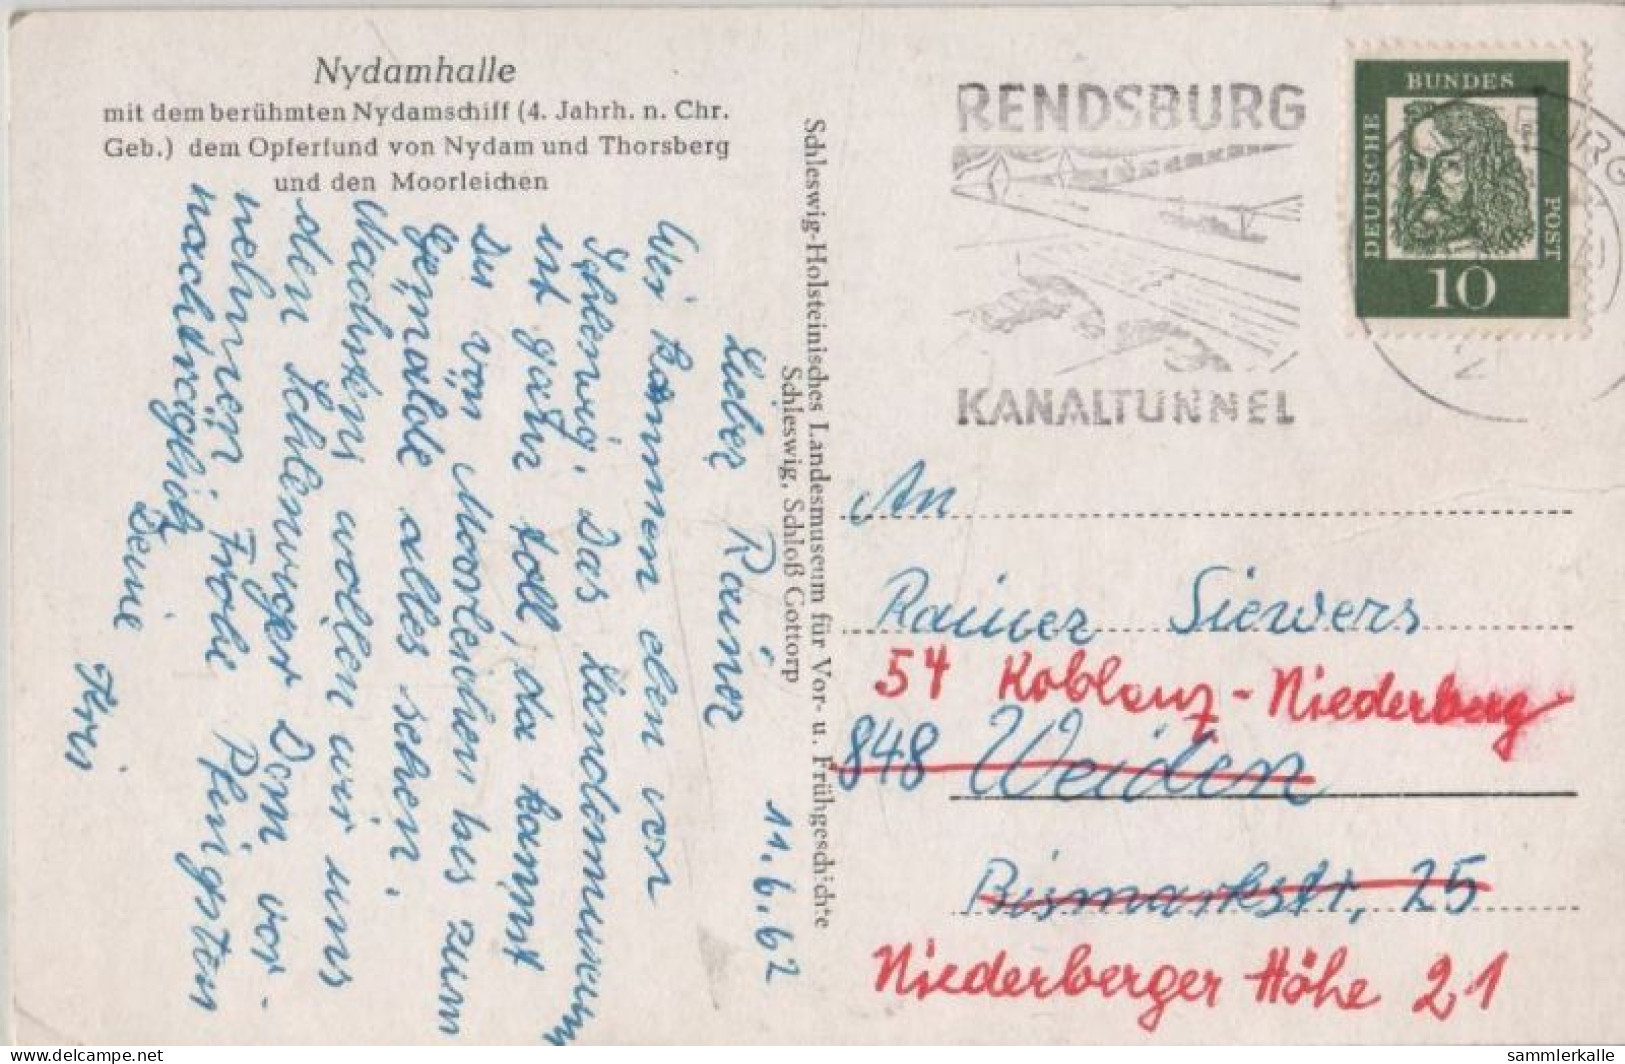 Nydamhalle
mit dem berühmten Nydamschiff (4. Jahrh. n. Chr.
Geb.) dem Opferfund von Nydam und Thorsberg
und den Moorleichen
Schleswig-Holsteinisches Landesmuseum für Vor- u. Frühgeschichte
Schleswig, Schloß Gottorp
11.6.62
Lieber Rainer
Wir kommen eben von
Schleswig. Das Landesmuseum
ist ganz toll, da kannst
Du von Moorleichen bis zum
Gemälde alles sehen.
Nächstens wollen wir uns
den Schleswiger Dom vor-
nehmen. Frohe Pfingsten
nachdräglich
Deine
Kris
RENDSBURG
KANALTUNNEL
BUNDES
DEUTSCHE
POST
10
An
Rainer Siewers
54 Koblenz-Niederberg
848 Weiden
Bismarkstr. 25
Niederberger Höhe 21
www.delcampe.net
sammlerkalle